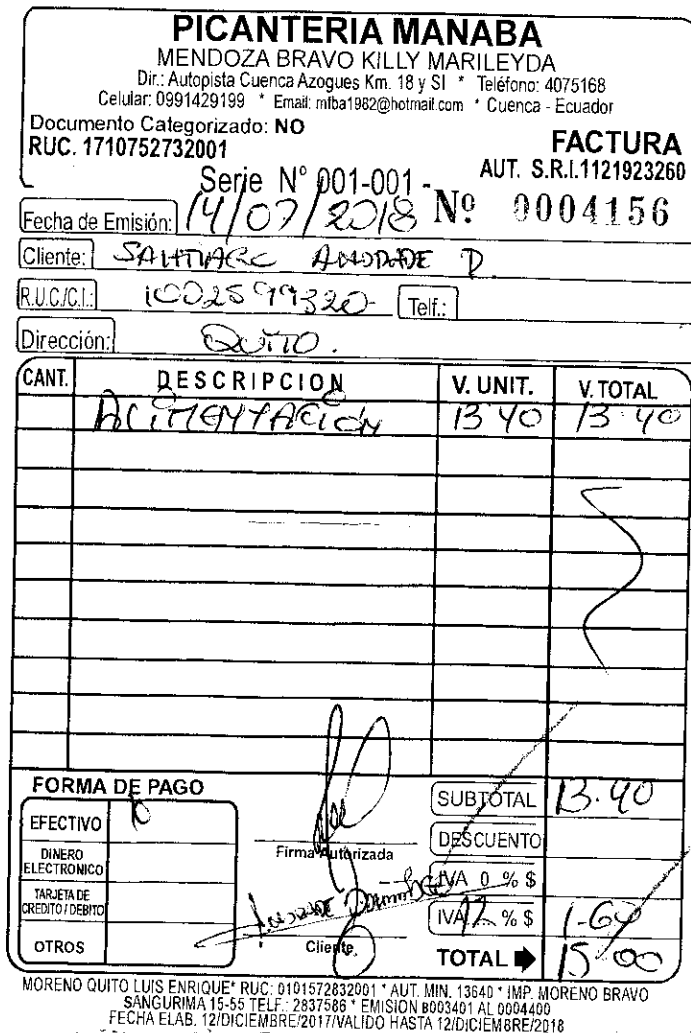 PICANTERIA MANABA
MENDOZA BRAVO KILLY MARILEYDA
Dir.: Autopista Cuenca Azogues Km. 18 y SI * Teléfono: 4075168
Celular: 0991429199 * Email: mfba1982@hotmail.com * Cuenca - Ecuador
Documento Categorizado: NO
RUC. 1710752732001
FACTURA
AUT. S.R.I.1121923260
Serie N° 001-001 - Nº 0004156
Fecha de Emisión: 14/07/2018
Cliente: SANTIAGO ANDRADE D.
R.U.C./C.I.: 1002599320 Telf.:
Dirección: QUITO.
CANT. DESCRIPCION V. UNIT. V. TOTAL
ALIMENTACIÓN 13.40 13.40
FORMA DE PAGO
EFECTIVO
DINERO ELECTRONICO
TARJETA DE CREDITO / DEBITO
OTROS
Firma Autorizada
Cliente
SUBTOTAL 13.40
DESCUENTO
IVA 0 % $
IVA 12 % $ 1.60
TOTAL 15.00
MORENO QUITO LUIS ENRIQUE* RUC: 0101572832001 * AUT. MIN. 13640 * IMP. MORENO BRAVO
SANGURIMA 15-55 TELF.: 2837586 * EMISION 0003401 AL 0004400
FECHA ELAB. 12/DICIEMBRE/2017/VALIDO HASTA 12/DICIEMBRE/2018